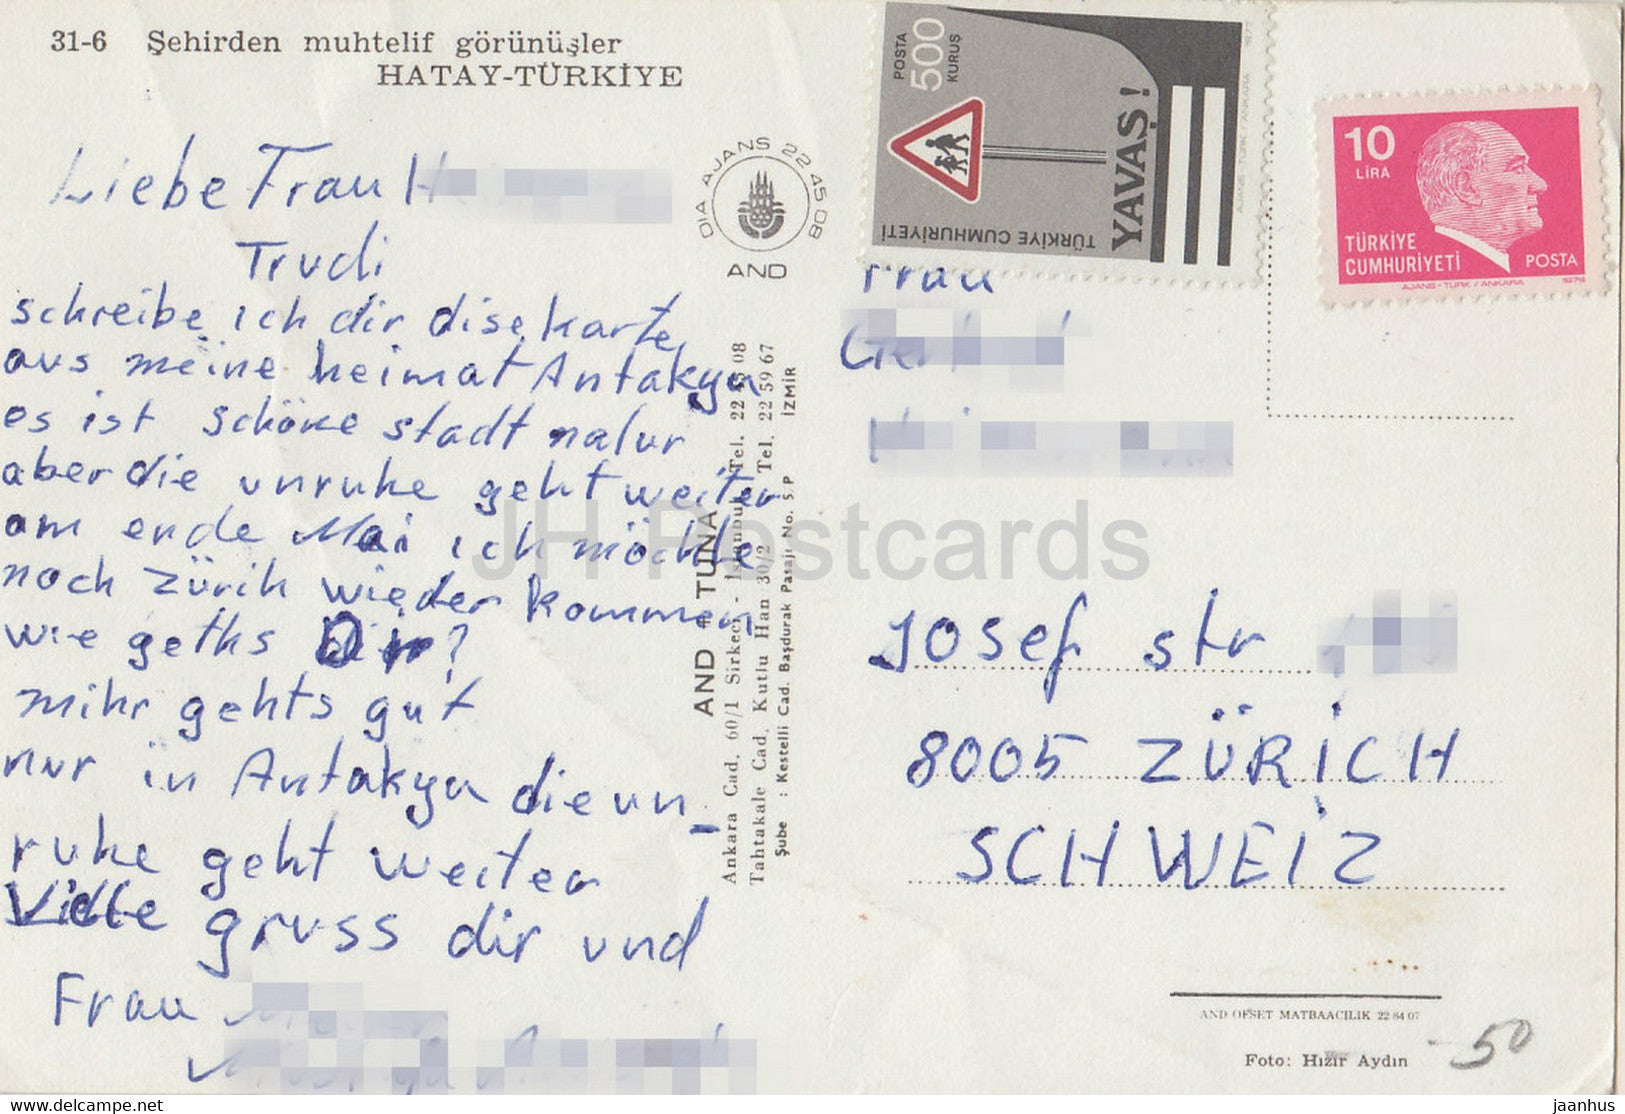 31-6 Şehirden muhtelif görünüşler
HATAY-TÜRKİYE
Liebe Frau H
Trudi
schreibe ich dir dise karte
aus meine heimat Antakya
es ist schöne stadt nalur
aber die unruhe geht weiter
am ende Mai ich möchte
noch zürih wieder kommen
wie geths Dir?
mihr gehts gut
nur in Antakya die un_
ruhe geht weiter
Viele gruss dir und
Frau
DIA AJANS 22 45 08
AND
AND TUNA
Ankara Cad. 60/1 Sirkeci - İstanbul Tel. 22 45 08
Tahtakale Cad. Kutlu Han 30/2 Tel. 22 59 67
Şube : Kestelli Cad. Başdurak Pasajı No. 5 P İZMİR
POSTA
500
KURUŞ
YAVAŞ!
TÜRKİYE CUMHURİYETİ
1977
AJANS-TÜRK/ANKARA
10
LİRA
TÜRKİYE
CUMHURİYETİ
POSTA
AJANS-TÜRK/ANKARA
Frau
Ger
Josef str
8005 ZÜRİCH
SCHWEİZ
AND OFSET MATBAACILIK 22 84 07
Foto: Hızır Aydın
-50
JH Postcards
31-05-2022 09:34:02
jaanhus